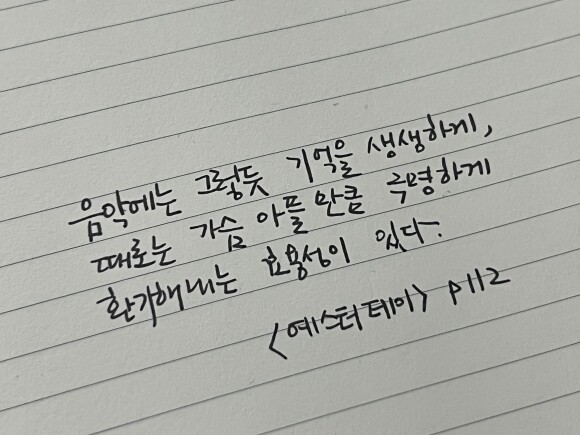 음악에는 그렇듯 기억을 생생하게,
때로는 가슴 아플 만큼 극명하게
환기해내는 효용성이 있다.
<예스터데이> p112